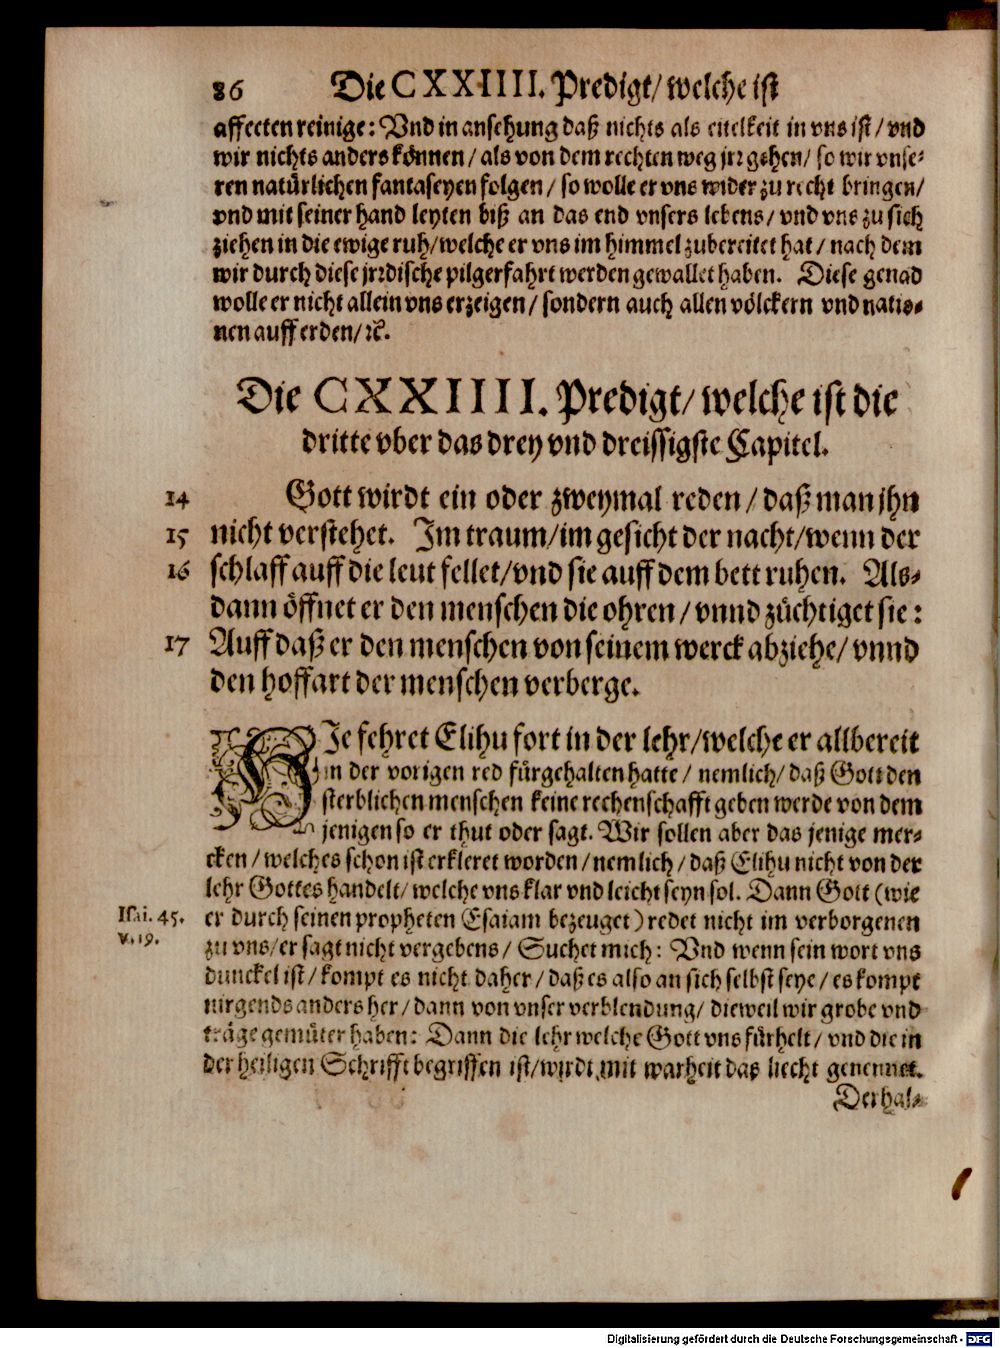 86 Die CXXIIII. Predigt/ welche ist
affecten reinige: Vnd in ansehung daß nichts als eitelkeit in vns ist/ vnd
wir nichts anders können/ als von dem rechten weg jrr gehen/ so wir vnse-
ren natürlichen fantaseyen folgen/ so wolle er vns wider zu recht bringen/
vnd mit seiner hand leyten biß an das end vnsers lebens/ vnd vns zu sich
ziehen in die ewige ruh/welche er vns im himmel zubereitet hat/ nach dem
wir durch diese jrrdische pilgerfahrt werden gewallet haben. Diese genad
wolle er nicht allein vns erzeigen/ sondern auch allen völckern vnd natio-
nen auff erden/ ꝛc.
Die CXXIIII. Predigt/ welche ist die
dritte vber das drey vnd dreissigste Capitel.
14 Gott wirdt ein oder zweymal reden/ daß man jhn
15 nicht verstehet. Im traum/im gesicht der nacht/wenn der
16 schlaff auff die leut fellet/vnd sie auff dem bett ruhen. Als-
dann öffnet er den menschen die ohren/ vnnd züchtiget sie:
17 Auff daß er den menschen von seinem werck abziehe/ vnnd
den hoffart der menschen verberge.
HIe fehret Elihu fort in der lehr/welche er allbereit
in der vorigen red fürgehalten hatte/ nemlich/ daß Gott den
sterblichen menschen keine rechenschafft geben werde von dem
jenigen so er thut oder sagt. Wir sollen aber das jenige mer-
cken/ welches schon ist erkleret worden/ nemlich/ daß Elihu nicht von der
lehr Gottes handelt/ welche vns klar vnd leicht seyn sol. Dann Gott (wie
Isai. 45. er durch seinen propheten Esaiam bezeuget) redet nicht im verborgenen
v. 19. zu vns/ er sagt nicht vergebens/ Suchet mich: Vnd wenn sein wort vns
dunckel ist/ kompt es nicht daher/ daß es also an sich selbst seye/ es kompt
nirgends anders her/ dann von vnser verblendung/ dieweil wir grobe vnd
träge gemüter haben: Dann die lehr welche Gott vns fürhelt/ vnd die in
der heiligen Schrifft begriffen ist/ wirdt mit warheit das liecht genennet.
Derhal-
Digitalisierung gefördert durch die Deutsche Forschungsgemeinschaft - DFG